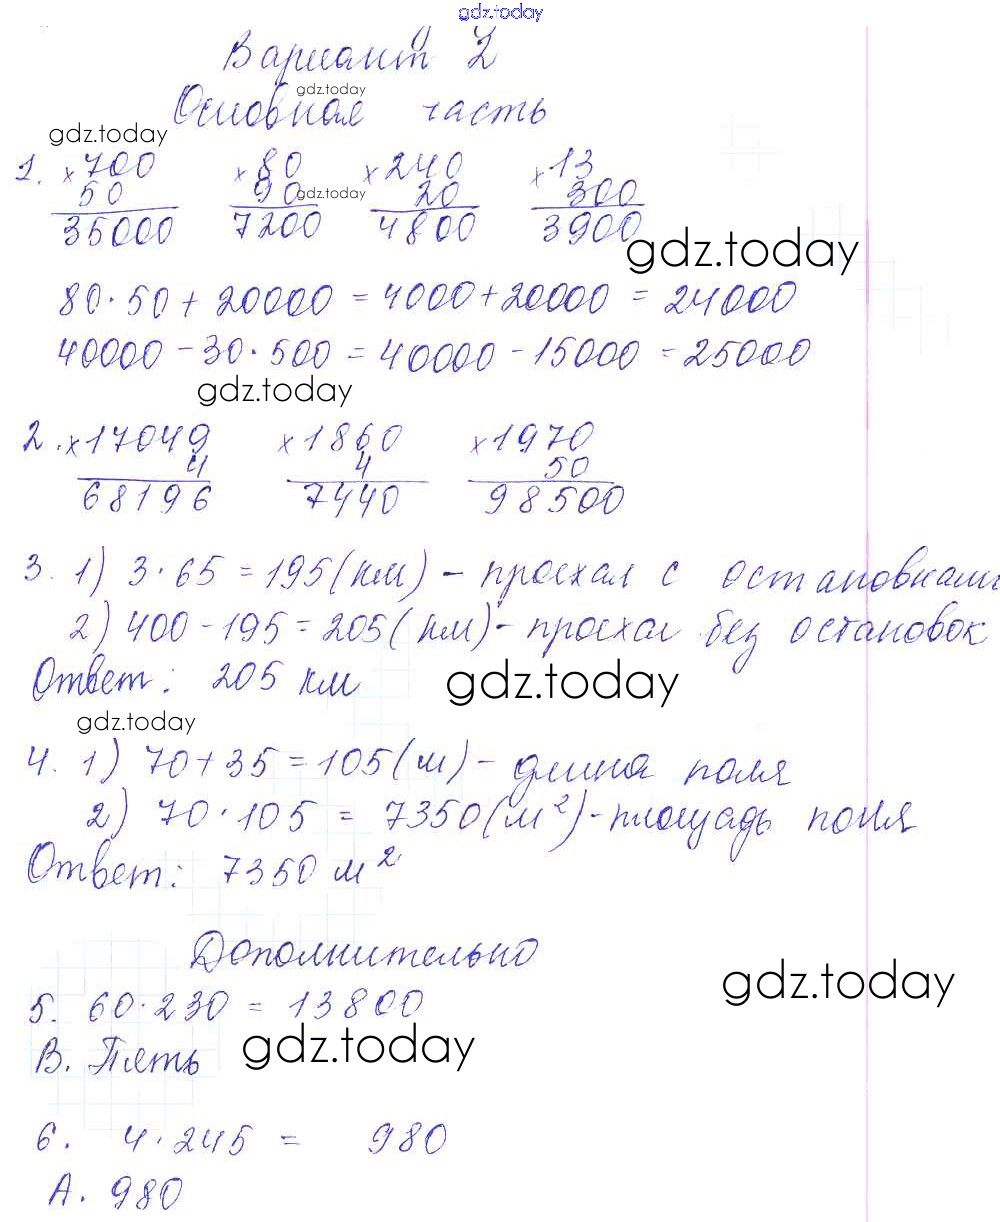 gdz.today
Вариант 2
gdz.today
Основная часть
gdz.today
1. ×700 ×80 ×240 ×13
50 90 20 300
gdz.today
35000 7200 4800 3900
gdz.today
80·50+20000=4000+20000=24000
40000-30·500=40000-15000=25000
gdz.today
2. ×17049 ×1860 ×1970
4 4 50
68196 7440 98500
3. 1) 3·65=195(км)-проехал с остановками
2) 400-195=205(км)-проехал без остановок
Ответ: 205 км
gdz.today
gdz.today
4. 1) 70+35=105(м)-длина поля
2) 70·105=7350(м²)-площадь поля
Ответ: 7350 м²
Дополнительно
gdz.today
5. 60·230=13800
В. Пять
gdz.today
6. 4·245= 980
А. 980